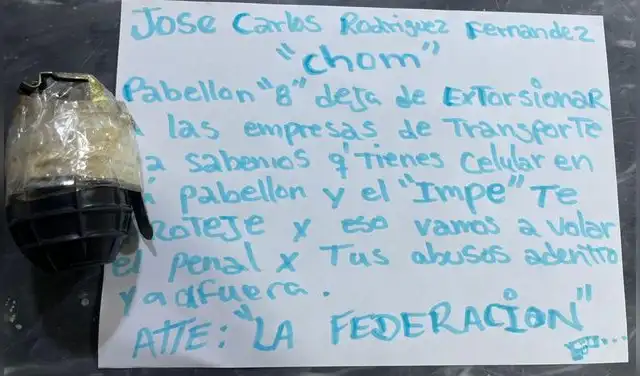 Jose Carlos Rodriguez Fernandez
"Chom"
Pabellon "8" deja de ExTorsionar
a las empresas de Transporte
ya sabemos q' Tienes Celular en
pabellon y el "Impe" Te
proteje x eso vamos a volar
el penal x Tus abusos adentro
y a afuera.
ATTE: "LA FEDERACION"